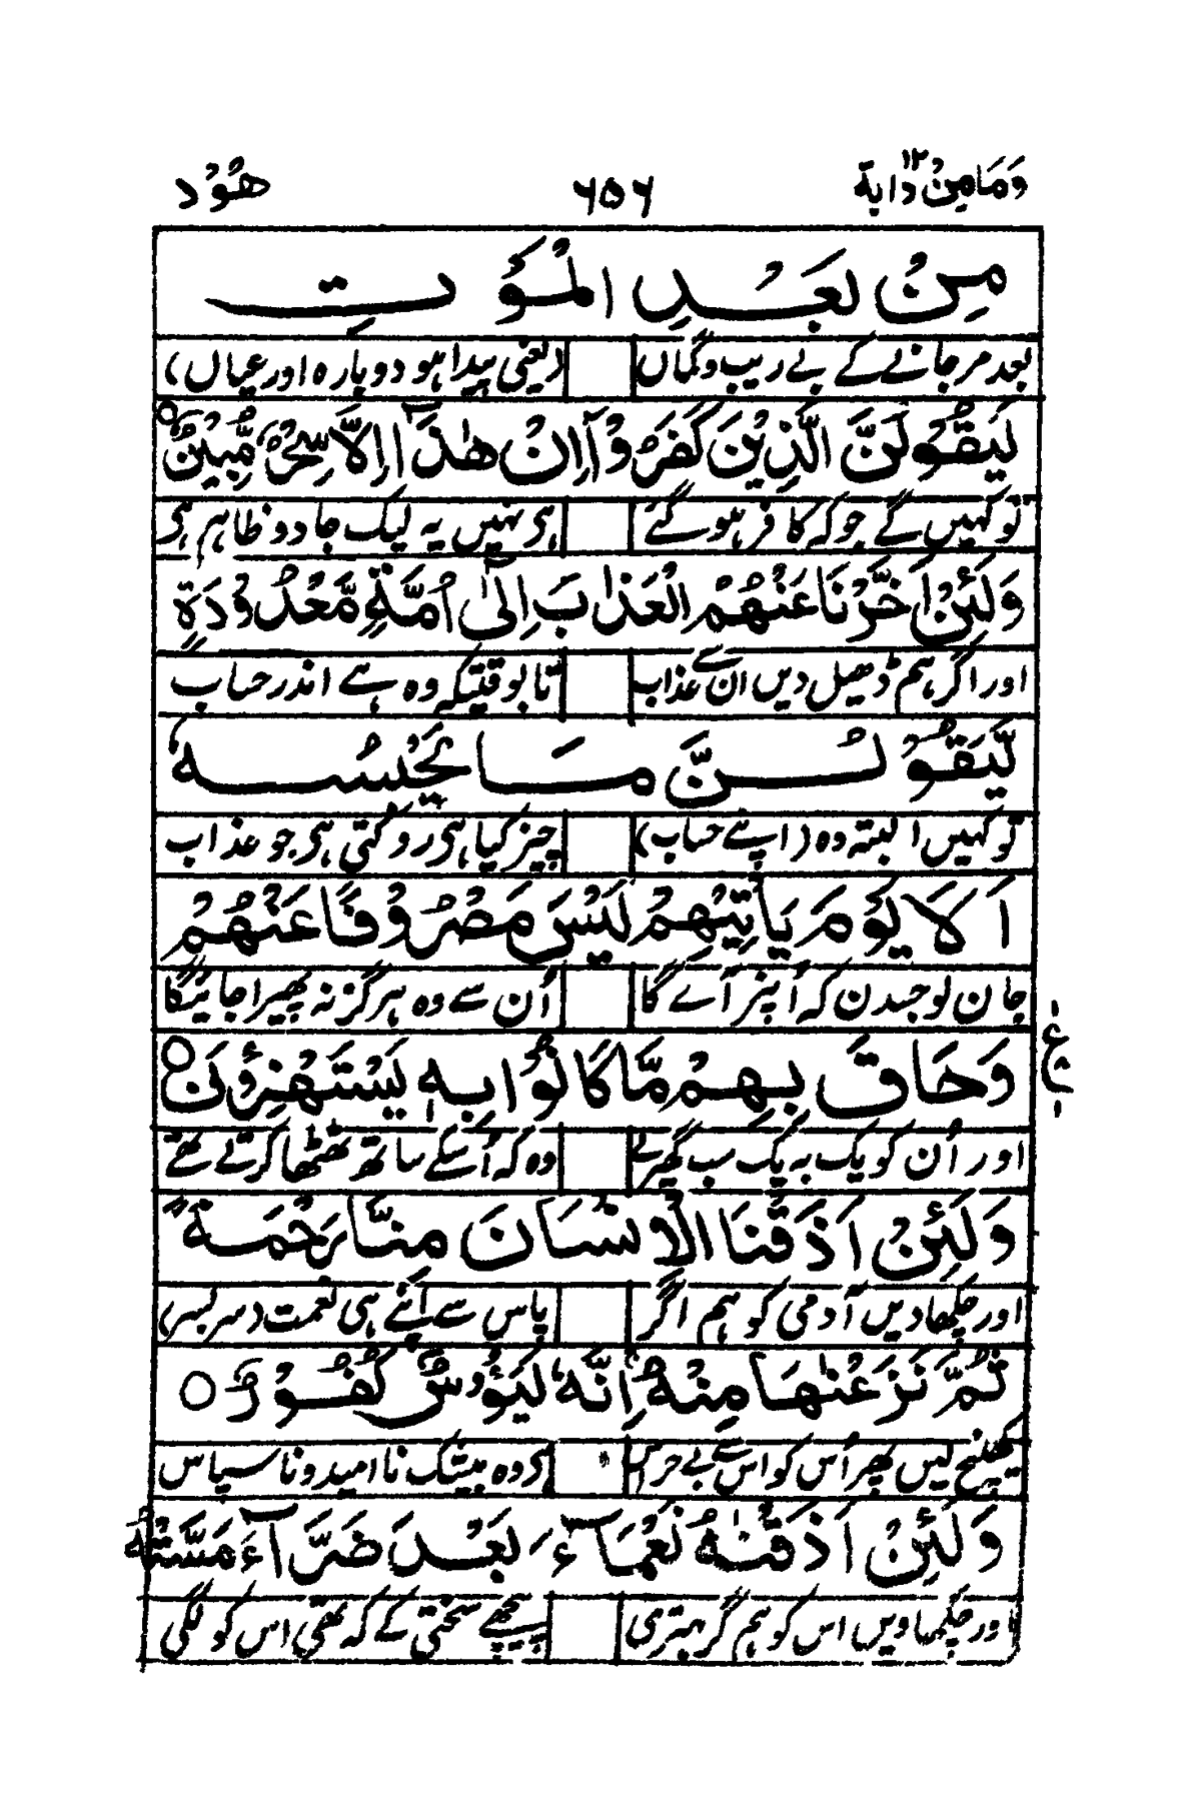 وَمَا مِنْ دَابة ١٢ ٦٥٦ هُوُد
مِنْ بَعْدِ الْمَوْتِ
بعد مرجانے کے بے ریب وگماں (یعنی پیدا ہو دوبارہ اور عیال)
لَيَقُوْلَنَّ الَّذِيْنَ كَفَرُوْآ اِنْ هٰذَآ اِلَّا سِحْرٌ مُّبِيْنٌ ○
تو کہیں گے جو کہ کافر ہو گئے ہی نہیں یہ لیک جادو ظاہر ہی
وَلَئِنْ اَخَّرْنَا عَنْهُمُ الْعَذَابَ اِلٰٓى اُمَّةٍ مَّعْدُوْدَةٍ
اور اگر ہم ڈھیل دیں ان سے عذاب تا بوقتیکہ وہ ہے اندر حساب
لَّيَقُوْلُنَّ مَا يَحْبِسُهٗ
تو کہیں البتہ وہ (اپنے حساب) چیز کیا ہی روکتی ہی جو عذاب
اَلَا يَوْمَ يَاْتِيْهِمْ لَيْسَ مَصْرُوْفًا عَنْهُمْ
جان لو جسدن کہ اُنپر آئے گا اُن سے وہ ہرگز نہ پھیرا جائیگا
وَحَاقَ بِهِمْ مَّا كَانُوْا بِهٖ يَسْتَهْزِءُوْنَ ○
اور اُن کو یک بہ یک سب گھیر لے وہ کہ اُسکے ساتھ ٹھٹھا کرتے تھے
ع
وَلَئِنْ اَذَقْنَا الْاِنْسَانَ مِنَّا رَحْمَةً
اور چکھا دیں آدمی کو ہم اگر پاس سے اپنے ہی نعمت (سر بسر)
ثُمَّ نَزَعْنٰهَا مِنْهُ اِنَّهٗ لَيَئُوْسٌ كَفُوْرٌ ○
کھینچ لیں پھر اُس کو اس سے بے ہراس ہی وہ بیشک ناامید و ناسپاس
وَلَئِنْ اَذَقْنٰهُ نَعْمَآءَ بَعْدَ ضَرَّآءَ مَسَّتْهُ
اور چکھا دیں اس کو ہم گر بہتری پیچھے سختی کے کہ تھی اس کو لگی